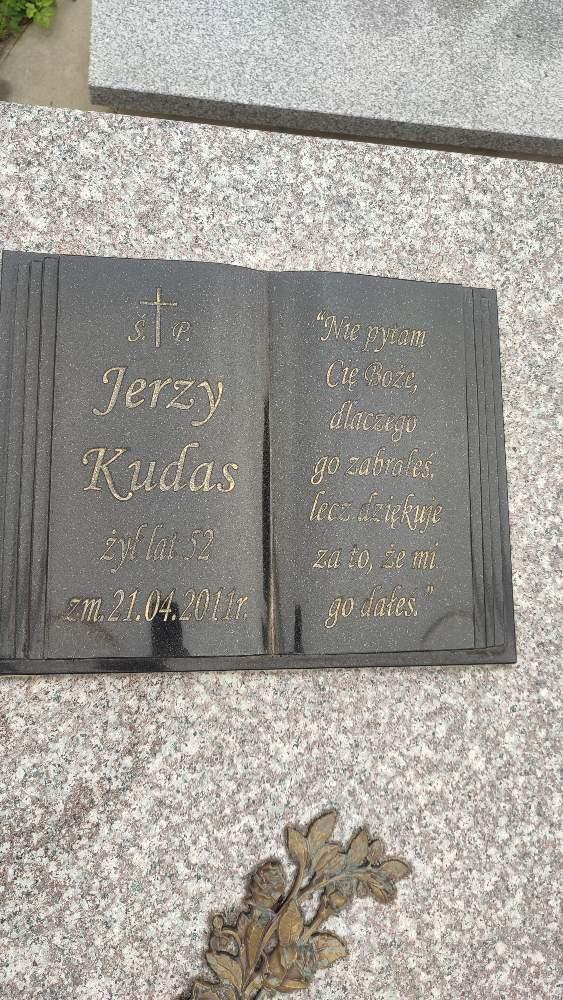 Ś. P.
Jerzy
Kudas
żył lat 52
zm. 21.04.2011r.
"Nie pytam
Cię Boże,
dlaczego
go zabrałeś,
lecz dziękuje
za to, że mi
go dałeś."